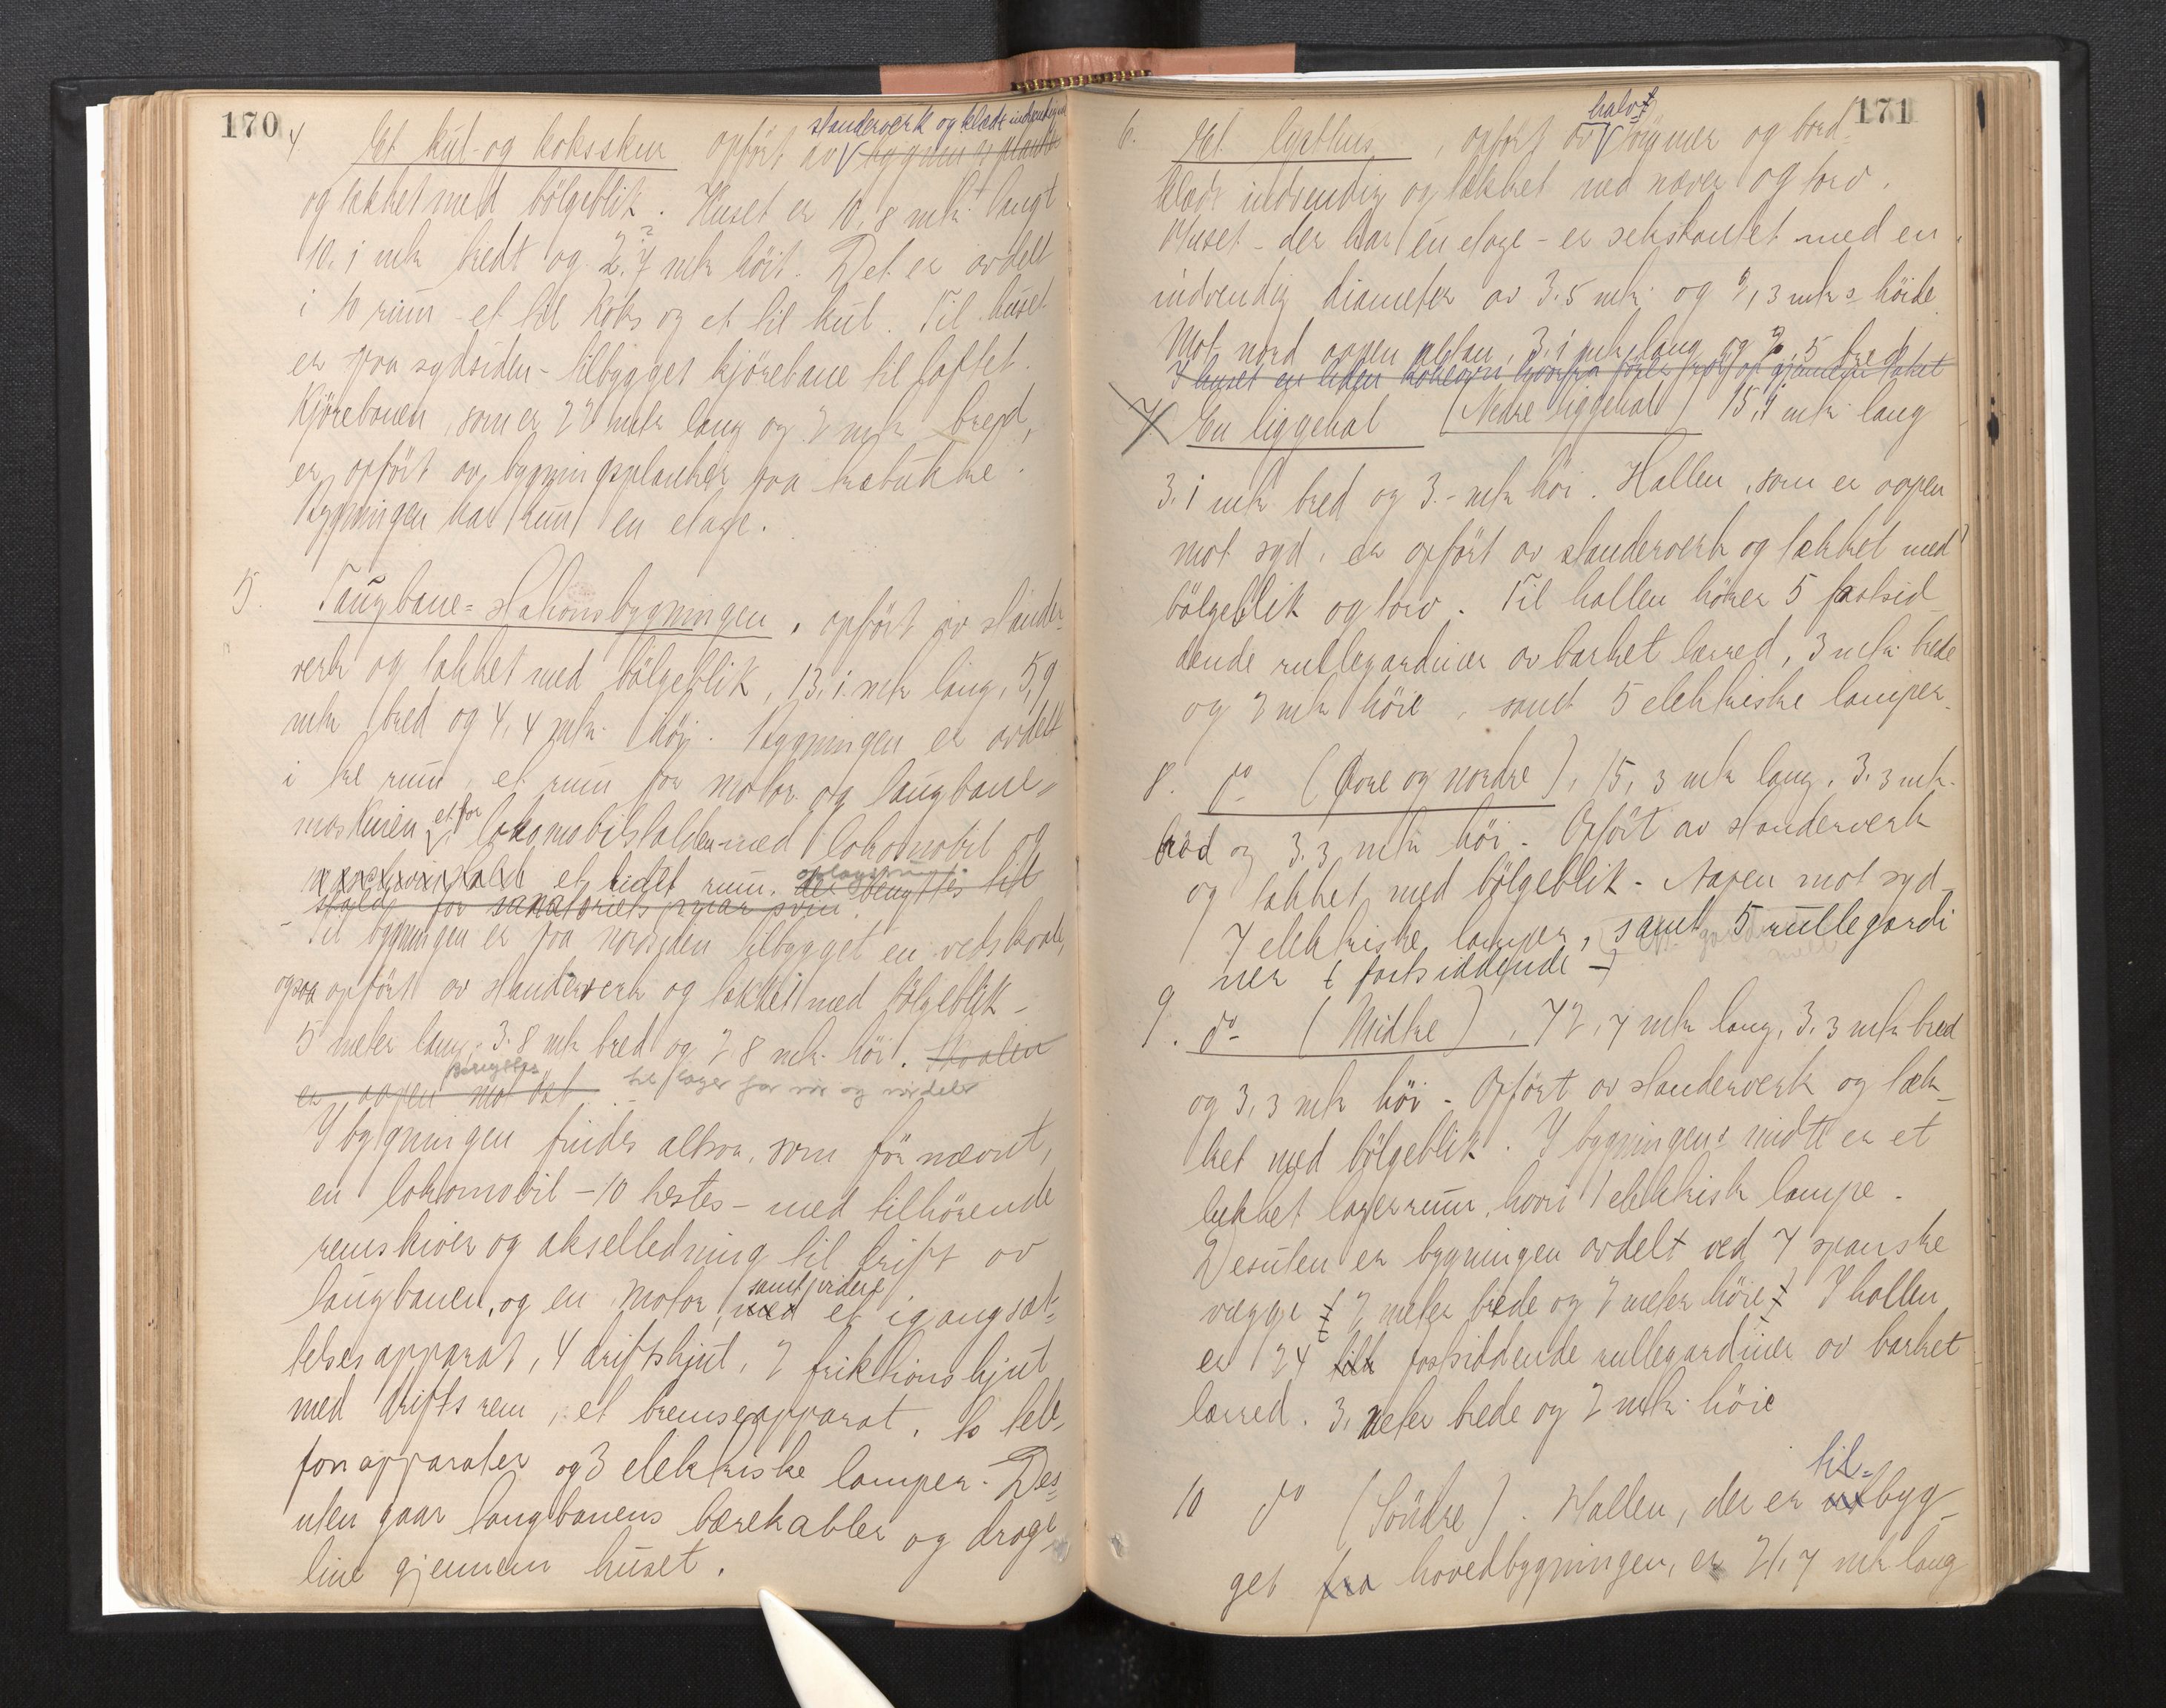 170
4 Et kul- og koksskur opført av standerverk og klædt indvendig ~~bygningsplanker~~
og tækket med bölgeblik. Huset er 10.8 mtr. langt
10.1 mtr bredt og 2.7 mtr höit. Det er avdelt
i to rum - et til koks og et til kul. Til huset
er paa sydsiden - tilbygget kjörebane til loftet.
Kjörebanen, som er 22 mtr lang og 2 mtr bred,
er opfört av bygningsplanker paa træbukke.
Bygningen har kun en etage.
5. Taugbane=stationsbygningen, opfört av stander-
verk og tækket med bölgeblik, 13,1 mtr lang, 5,9
mtr bred og 4,4 mtr. höi. Bygningen er avdelt
i tre rum, et rum for motor og taugbane=
maskinen et for lokomobilstalden med lokomobil og
et lidet rum. oplagsrum ~~der benyttes til~~
~~stald for sanatoriets svin.~~
- Til bygningen er paa nordsiden tilbygget en vedskaale,
ogsaa opfört av standerverk og tækket med bölgeblik -
5 meter lang, 3.8 mtr bred og 2.8 mtr. höi. ~~Skaalen~~
~~er aapen mot öst~~ Benyttes til lager for rör og rördeler
I bygningen findes altsaa, som för nævnt,
en lokomobil - 10 hestes - med tilhörende
remskiver og akselledning til drift av
taugbanen, og en motor, ~~med~~ samt videre et igangsæt-
telsesapparat, 4 driftshjul, 2 friktionshjul
med driftsrem, et bremseapparat, to tele-
fonapparater og 3 elektriske lamper. Des=
uten gaar taugbanens bærekabler og drage
line gjennem huset.
171
6. Et lysthus, opfört av halvt tömmer og bord-
klædt indvendig og tækket med næver og torv.
Huset - der har en etage - er sekskantet med en
indvendig diameter av 3.5 mtr. og 2,3 mtrs höide.
Mot nord aapen altan, 3.1 mtr lang og 2.5 bred
~~I huset en liden kokeovn hvorfra förer rör op gjennem taket~~
7. En liggehal (Nedre liggehal) 15,4 mtr. lang
3.1 mtr bred og 3.- mtr höi. Hallen, som er aapen
mot syd, er opfört av standerverk og tækket med
bölgeblik og torv. Til hallen hörer 5 fastsid-
dende rullegardiner av barket lærred, 3 mtr. brede
og 2 mtr höie, samt 5 elektriske lamper.
8. do (Övre og nordre), 15,3 mtr lang, 3.3 mtr.
bred og 3.3 mtr höi. Opfört av standerverk
og tækket med bölgeblik - Aapen mot syd -
7 elektriske lamper, samt 5 rullegardi
ner fastsiddende
9. do (Midtre), 72,7 mtr lang, 3.3 mtr bred
og 3,3 mtr höi - Opfört av standerverk og tæk-
ket med bölgeblik. I bygningens midte er et
lukket lagerrum, hvori 1 elektrisk lampe.
Desuten er bygningen avdelt ved 7 spanske
vægge 2 meter brede og 2 meter höie I hallen
er 24 fastsiddende rullegardiner av barket
lærred. 3. meter brede og 2 mtr. höie
10 do (Söndre). Hallen, der er til= ~~ut~~byg-
get ~~fra~~ hovedbygningen, er 21,7 mtr lang